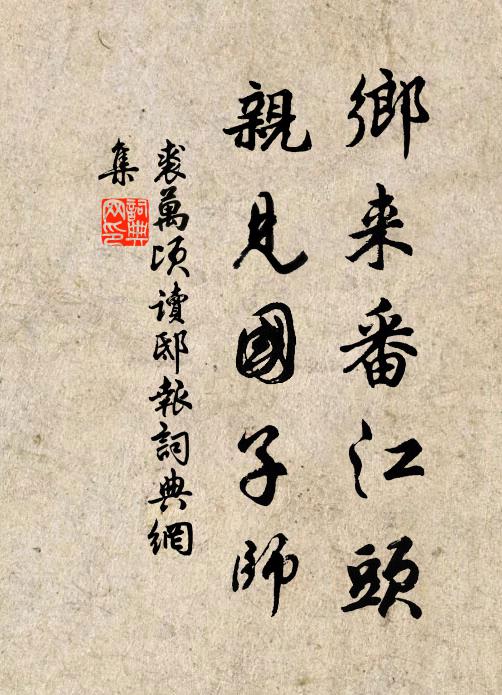 鄉来番江頭
親見國子師
裘萬頃讀邸報詞典網
集
詞典網印